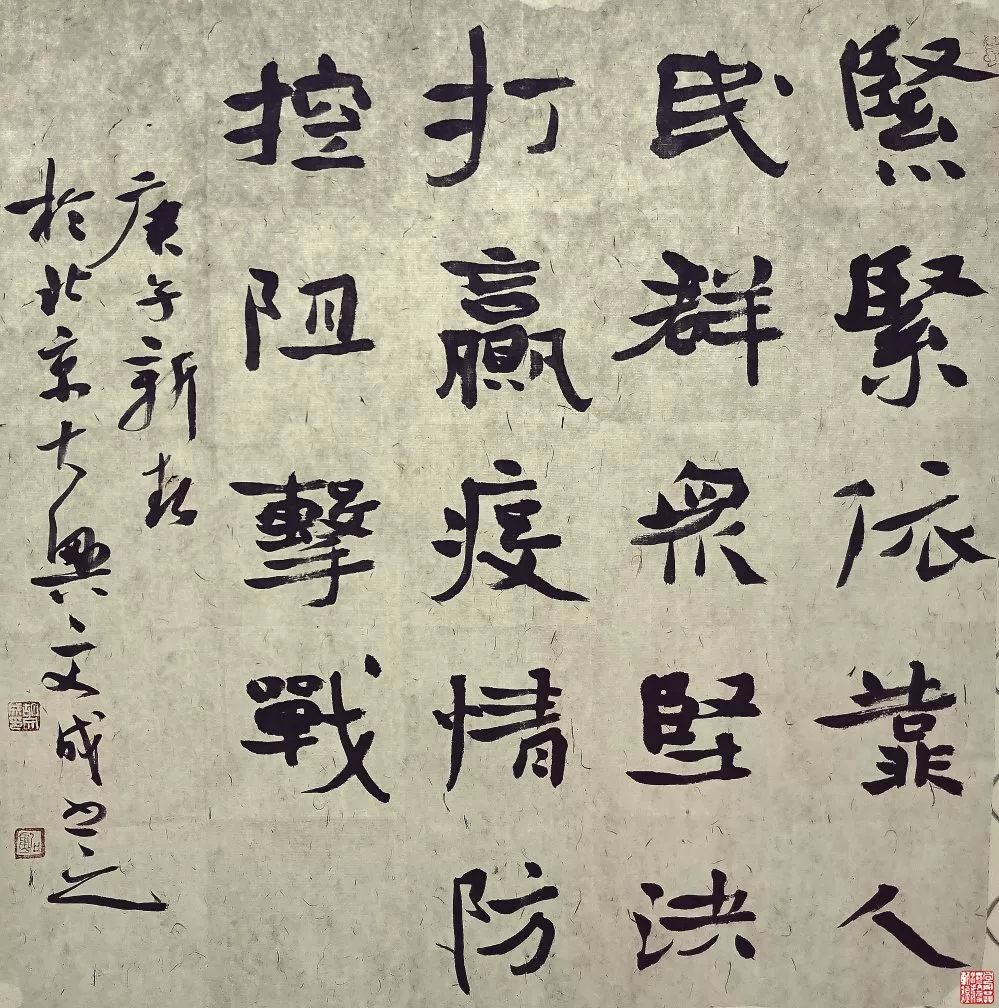 緊緊依靠人
民群衆堅決
打贏疫情防
控阻擊戰
庚子新春
於北京大興文成書之